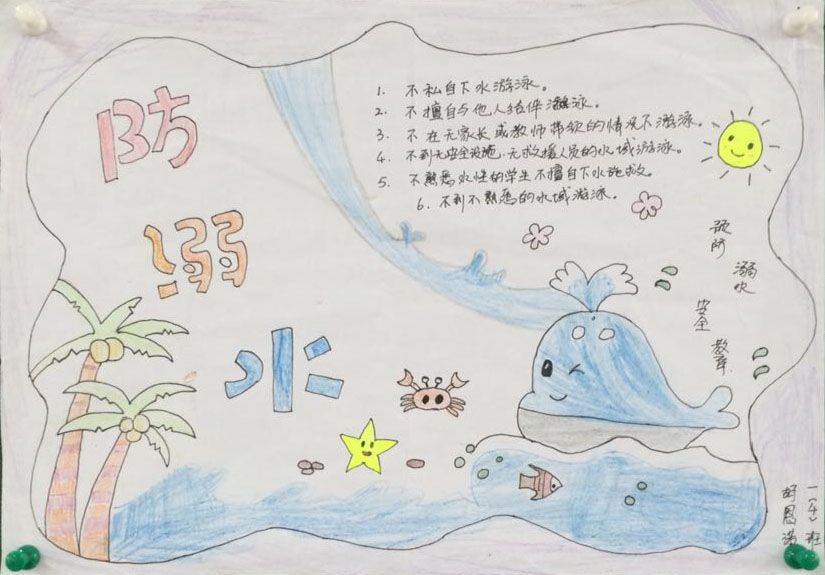 防
溺
水
1. 不私自下水游泳。
2. 不擅自与他人结伴游泳。
3. 不在无家长或教师带领的情况下游泳。
4. 不到无安全设施、无救援人员的水域游泳。
5. 不熟悉水性的学生不擅自下水施救。
6. 不到不熟悉的水域游泳。
预防
溺水
安全
教育
一(4)班
胡恩诺